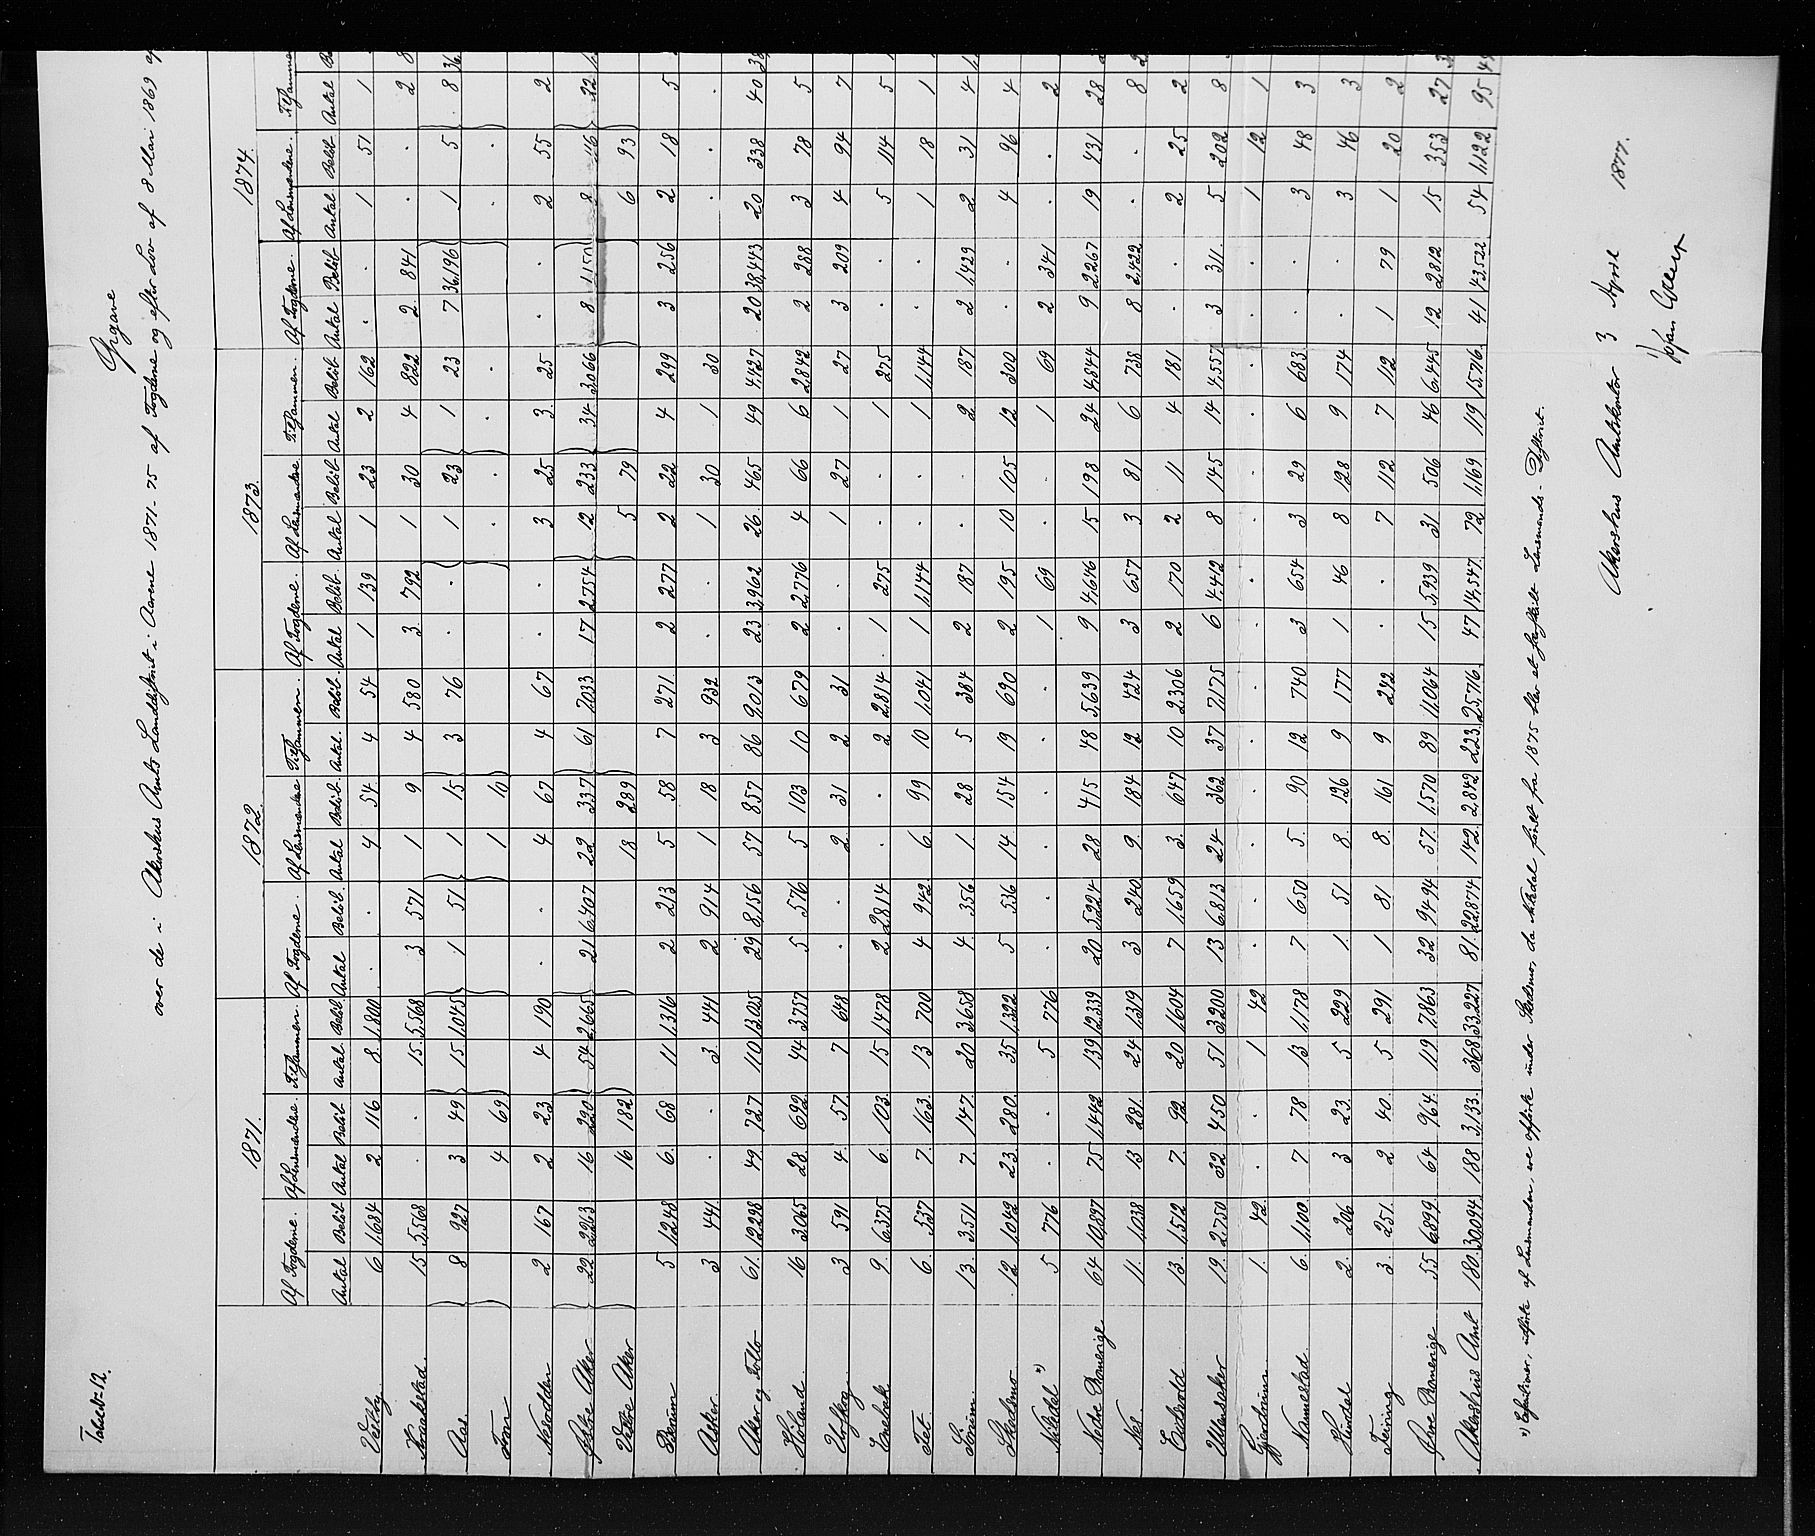 Tabel № 12.
Opgave
over de i Akershus Amts Landdistrikt i Aarene 1871-75 af Fogdene og efter Lov af 8 Mai 1869 af
1871. 1872. 1873. 1874.
Af Fogdene. Af Lensmændene. Tilsammen. Af Fogdene. Af Lensmændene Tilsammen. Af Fogdene. Af Lensmændene Tilsammen. Af Fogdene. Af Lensmændene. Tilsammen
Antal Beløb. Antal Beløb. Antal Beløb Antal Beløb. Antal Beløb. Antal. Beløb. Antal Beløb. Antal Beløb. Antal Beløb. Antal Beløb Antal Beløb Antal
Vestby 6 1,684 2 116 8 1,800 . . 4 54 4 54 1 139 1 23 2 162 . . 1 51 1
Kraakstad 15 5,568 . . 15 5,568 3 571 1 9 4 580 3 792 1 30 4 822 2 841 . . 2 8
Aas 8 927 3 49 15 1,045 1 51 1 15 3 76 . . 1 23 1 23 7 36,196 1 5 8 36
Fron 4 69 1 10 . . . . . .
Nesodden 2 167 2 23 4 190 . . 4 67 4 67 . . 3 25 3 25 . . 2 55 2
Østre Aker 22 2,263 16 220 54 2,665 21 6,407 22 337 61 7,033 17 2,754 12 233 34 3,066 8 1,150 8 116 22 1,
Vestre Aker 16 182 18 289 5 79 6 93
Bærum 5 1,248 6 68 11 1,316 2 213 5 58 7 271 2 277 2 22 4 299 3 256 2 18 5
Asker 3 441 . . 3 441 2 914 1 18 3 932 . . 1 30 1 30 . .
Aker og Follo 61 12,298 49 727 110 13,025 29 8,156 57 857 86 9,013 23 3,962 26 465 49 4,427 20 38,443 20 338 40 38,
Høland 16 3,065 28 692 44 3,757 5 576 5 103 10 679 2 2,776 4 66 6 2,842 2 288 3 78 5
Urskog 3 591 4 57 7 648 . . 2 31 2 31 1 27 1 27 3 209 4 94 7
Enebak 9 6,375 6 103 15 1,478 2 2,814 . . 2 2,814 1 275 . . 1 275 . . 5 114 5
Fet 6 537 7 163 13 700 4 942 6 99 10 1,041 1 1,144 . . 1 1,144 . . 1 18 1
Sørum 13 3,511 7 147 20 3,658 4 356 1 28 5 384 2 187 . . 2 187 2 1,429 2 31 4 1,
Skedsmo 12 1,042 23 280 35 1,322 5 536 14 154 19 690 2 195 10 105 12 300 . . 4 96 4
Nitedal *) 5 776 . . 5 776 . . . . . . 1 69 . . 1 69 2 341 . . 2
Nedre Romerige 64 10,897 75 1,442 139 12,339 20 5,224 28 415 48 5,639 9 4,646 15 198 24 4,844 9 2,267 19 431 28 2
Nes 11 1,038 13 281 24 1,319 3 240 9 184 12 424 3 657 3 81 6 738 8 2,422 . . 8 2
Eidsvold 13 1,512 7 92 20 1,604 7 1,659 3 647 10 2,306 2 170 2 11 4 181 . . 2 25 2
Ullensaker 19 2,750 32 450 51 3,200 13 6,813 24 362 37 7,175 6 4,412 8 145 14 4,557 3 311 5 202 8
Gjerdrum 1 42 . . 1 42 . . . . . . . . . . . . . . 1 12 1
Nannestad 6 1,100 7 78 13 1,178 7 650 5 90 12 740 3 654 3 29 6 683 . . 3 48 3
Hurdal 2 206 3 23 5 229 1 51 8 126 9 177 1 46 8 128 9 174 . . 3 46 3
Feiring 3 251 2 40 5 291 1 81 8 161 9 242 . . 7 112 7 112 1 79 1 20 2
Øvre Romerige 55 6,899 64 964 119 7,863 32 9494 57 1,570 89 11,064 15 5,939 31 506 46 6,445 12 2812 15 353 27 3
Akershus Amt 180 30,094 188 3,133 368 33,227 81 22,874 142 2,842 223 25,716 47 14,547 72 1,169 119 15,716 41 43,522 54 1,122 95 44
*) Exfutioner, udførte af Lensmanden, ere opførte under Skedsmo, da Nitedal først fra 1875 blev et særskilt Lensmands-Distrikt.
Akershus Amtskontor 3 April 1877.